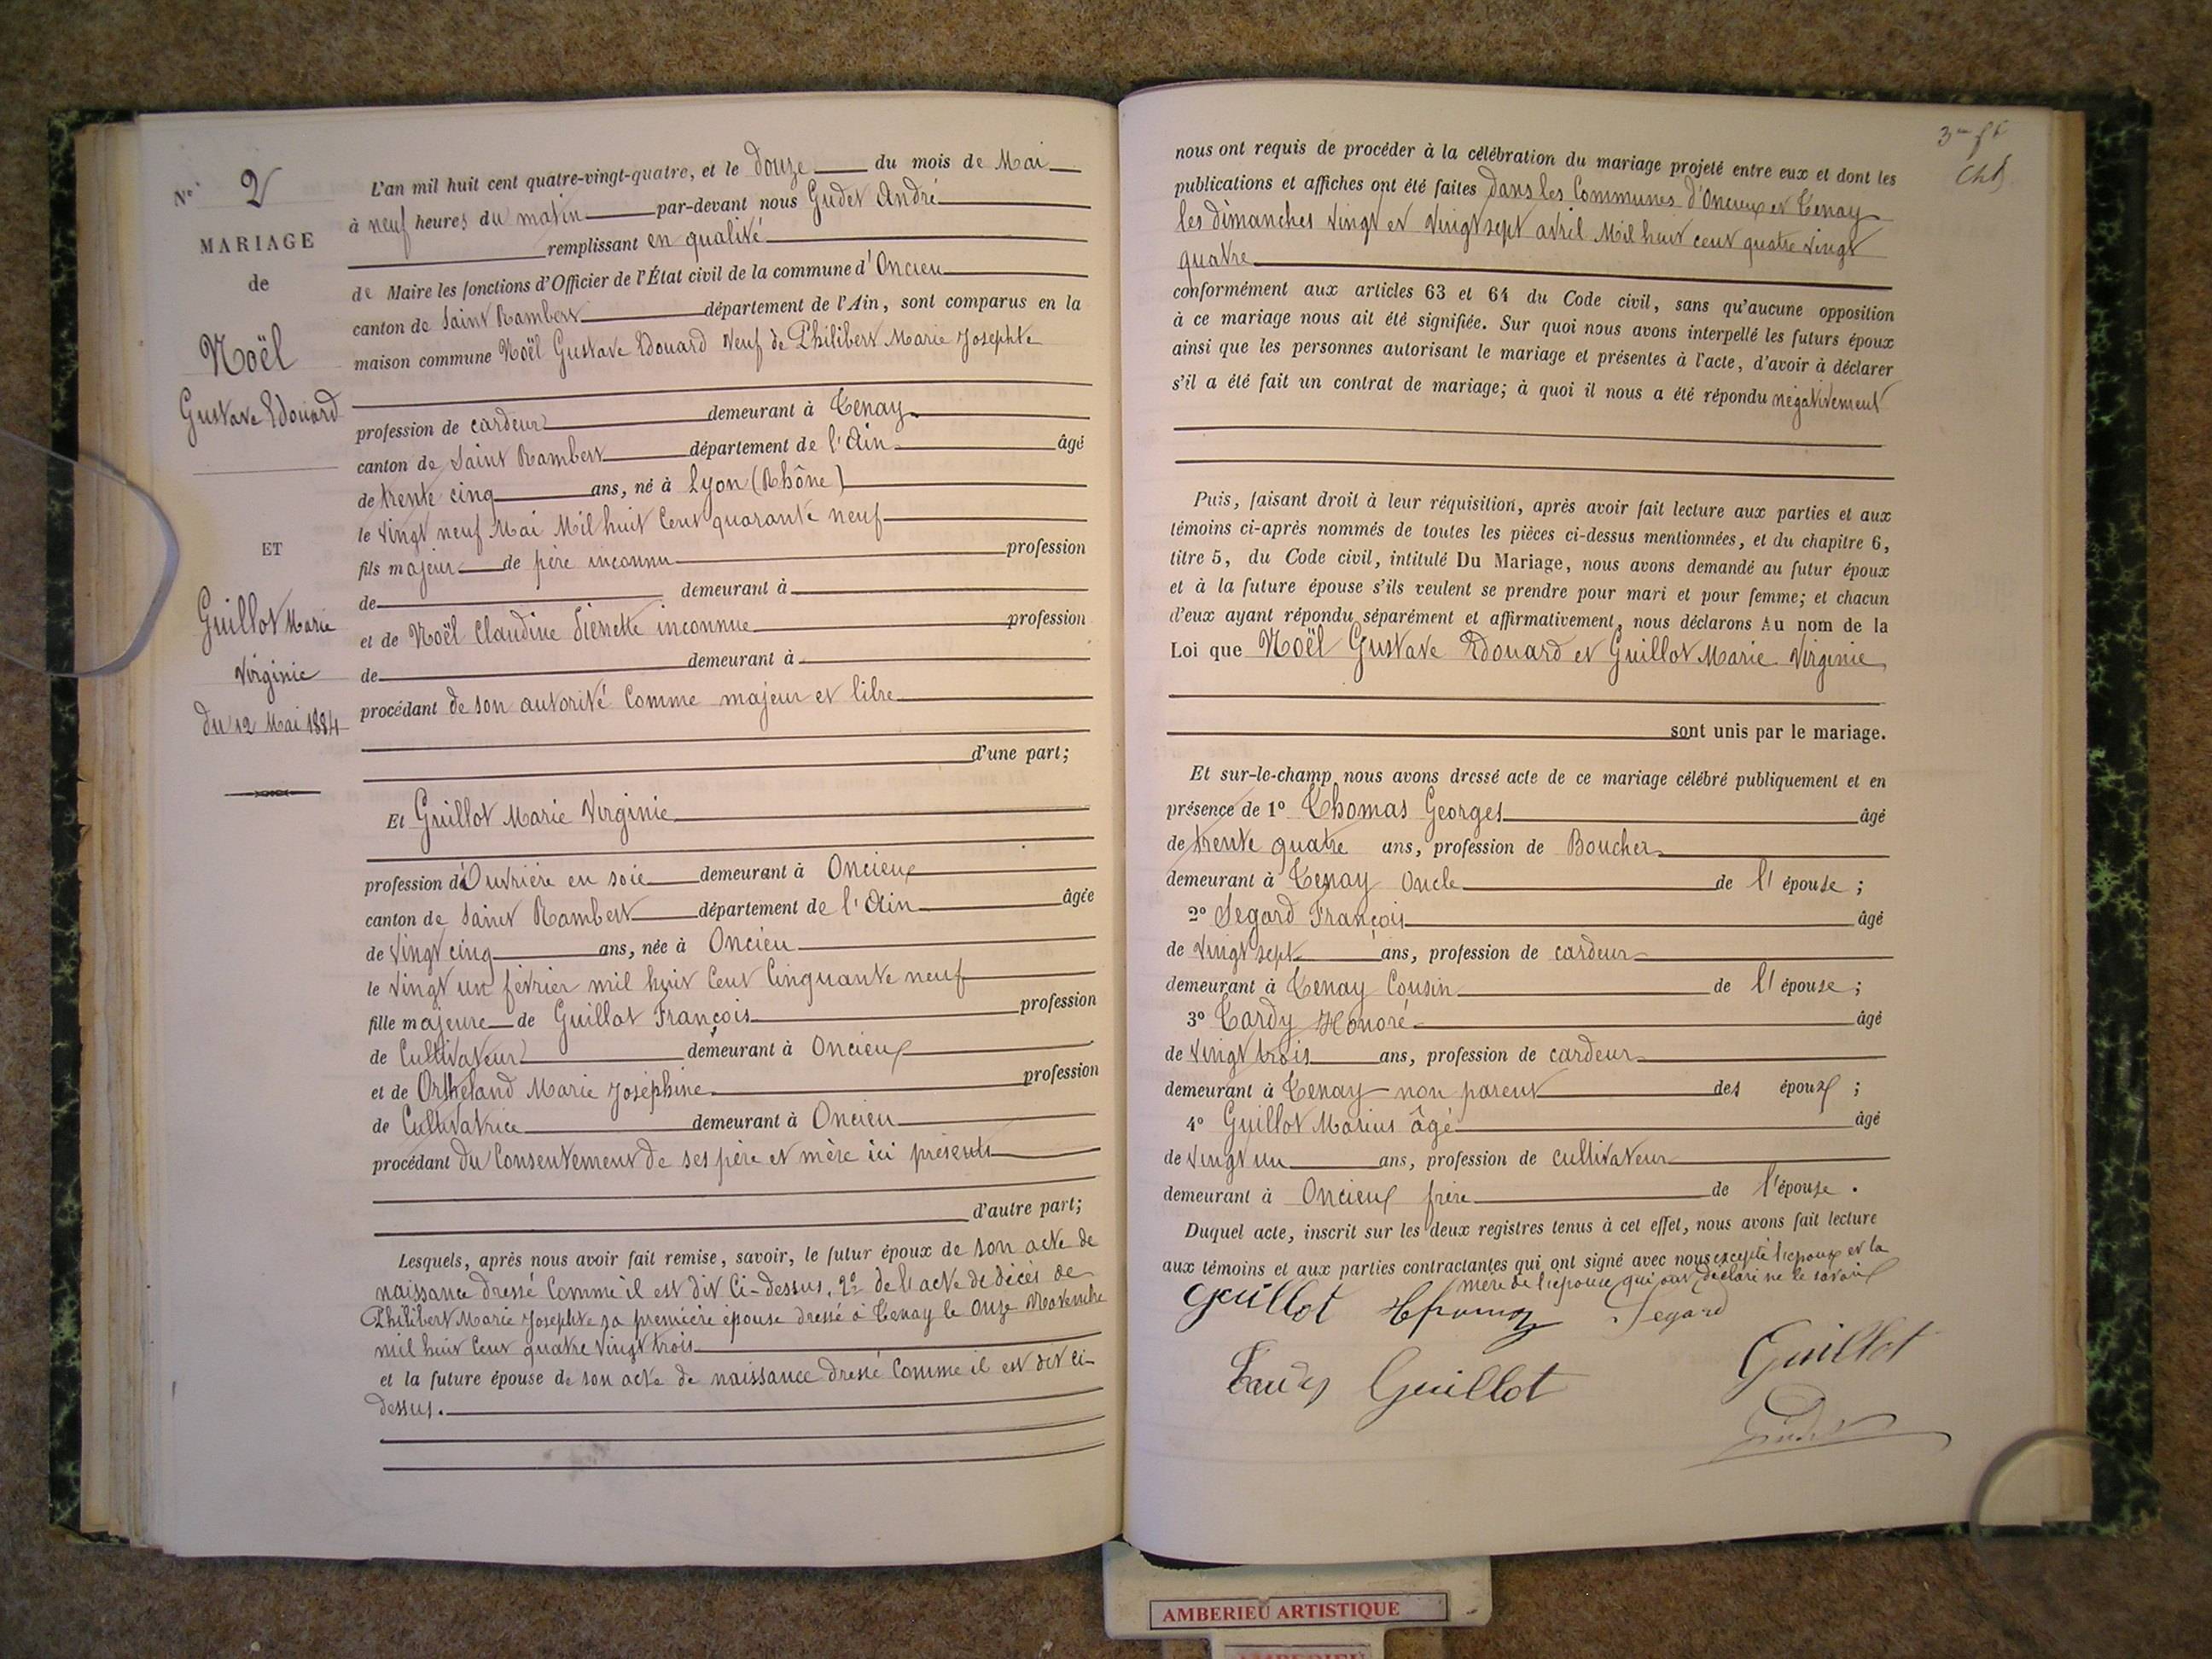 N° 2
MARIAGE
de
Noël
Gustave Edouard
ET
Guillot Marie
Virginie
du 12 Mai 1884
L'an mil huit cent quatre-vingt-quatre, et le douze du mois de Mai
à neuf heures du matin par-devant nous Gudet André
remplissant en qualité
de Maire les fonctions d'Officier de l'État civil de la commune d'Oncieu
canton de Saint Rambert département de l'Ain, sont comparus en la
maison commune Noël Gustave Edouard veuf de Philibert Marie Josephte
profession de cardeur demeurant à Tenay
canton de Saint Rambert département de l'Ain âgé
de trente cinq ans, né à Lyon (Rhône)
le vingt neuf Mai Mil huit Cent quarante neuf
fils majeur de père inconnu profession
de demeurant à
et de Noël Claudine Pierrette inconnue profession
de demeurant à
procédant de son autorité Comme majeur et libre
d'une part;
Et Guillot Marie Virginie
profession d'Ouvrière en soie demeurant à Oncieux
canton de Saint Rambert département de l'Ain âgée
de vingt cinq ans, née à Oncieu
le vingt un février mil huit Cent Cinquante neuf
fille majeure de Guillot François profession
de Cultivateur demeurant à Oncieux
et de Orthéland Marie Joséphine profession
de Cultivatrice demeurant à Oncieu
procédant du Consentement de ses père et mère ici présents
d'autre part;
Lesquels, après nous avoir fait remise, savoir, le futur époux de son acte de
naissance dressé Comme il est dit Ci-dessus. 2° de l'acte de décès de
Philibert Marie Josephte sa première épouse dressé à Tenay le Onze Novembre
mil huit Cent quatre vingt trois
et la future épouse de son acte de naissance dressé Comme il est dit ci-
dessus.
nous ont requis de procéder à la célébration du mariage projeté entre eux et dont les
publications et affiches ont été faites dans les Communes d'Oncieux et Tenay
les dimanches vingt et vingt sept avril Mil huit cent quatre vingt
quatre
conformément aux articles 63 et 64 du Code civil, sans qu'aucune opposition
à ce mariage nous ait été signifiée. Sur quoi nous avons interpellé les futurs époux
ainsi que les personnes autorisant le mariage et présentes à l'acte, d'avoir à déclarer
s'il a été fait un contrat de mariage; à quoi il nous a été répondu négativement
Puis, faisant droit à leur réquisition, après avoir fait lecture aux parties et aux
témoins ci-après nommés de toutes les pièces ci-dessus mentionnées, et du chapitre 6,
titre 5, du Code civil, intitulé Du Mariage, nous avons demandé au futur époux
et à la future épouse s'ils veulent se prendre pour mari et pour femme; et chacun
d'eux ayant répondu séparément et affirmativement, nous déclarons Au nom de la
Loi que Noël Gustave Edouard et Guillot Marie Virginie
sont unis par le mariage.
Et sur-le-champ nous avons dressé acte de ce mariage célébré publiquement et en
présence de 1° Thomas Georges âgé
de trente quatre ans, profession de Boucher
demeurant à Tenay Oncle de l'épouse;
2° Segard François âgé
de vingt sept ans, profession de cardeur
demeurant à Tenay Cousin de l'épouse;
3° Tardy Honoré âgé
de vingt trois ans, profession de cardeur
demeurant à Tenay non parent des époux;
4° Guillot Marius âgé âgé
de vingt un ans, profession de cultivateur
demeurant à Oncieux frère de l'épouse.
Duquel acte, inscrit sur les deux registres tenus à cet effet, nous avons fait lecture
aux témoins et aux parties contractantes qui ont signé avec nous excepté l'époux et la
mère de l'épouse qui ont déclaré ne le savoir
Guillot Segard
Guillot Guillot
AMBERIEU ARTISTIQUE
AMBERIEU